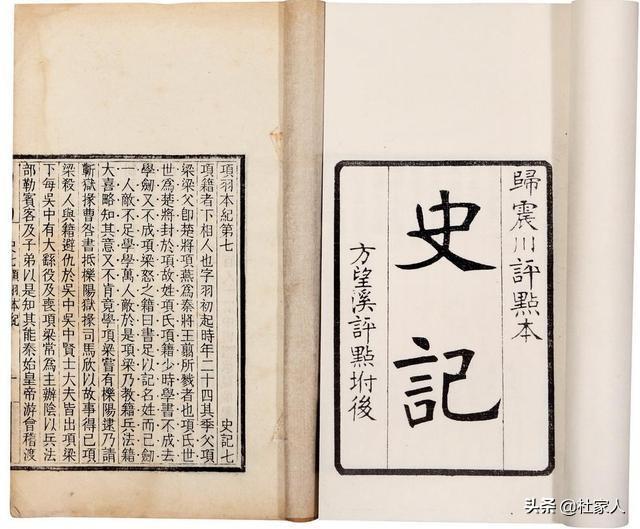 歸震川評點本
史記
方望溪評點坿後
項羽本紀第七 史記七
項籍者下相人也字羽初起時年二十四其季父項
梁梁父即楚將項燕為秦將王翦所戮者也項氏世
世為楚將封於項故姓項氏項籍少時學書不成去
學劍又不成項梁怒之籍曰書足以記名姓而已劍
一人敵不足學學萬人敵於是項梁乃教籍兵法籍
大喜略知其意又不肯竟學項梁嘗有櫟陽逮乃請
蘄獄掾曹咎書抵櫟陽獄掾司馬欣以故事得已項
梁殺人與籍避仇於吳中吳中賢士大夫皆出項梁
下每吳中有大繇役及喪項梁常為主辦陰以兵法
部勒賓客及子弟以是知其能秦始皇帝游會稽渡
头条@杜家人